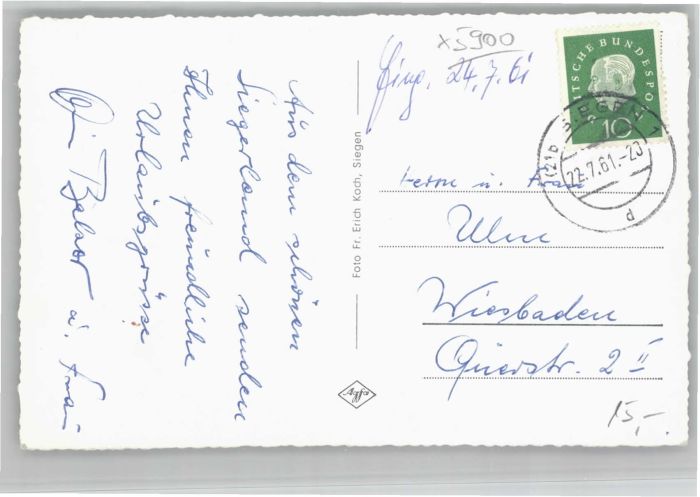 Aus dem schönen
Siegerland senden
Ihnen freundliche
Urlaubsgrüsse
u. Frau
Foto Fr. Erich Koch, Siegen
Agfa
x5900
Eing. 24.7.61
TSCHE BUNDESPO
10
(21b) SIEGEN 1
22.7.61.-20
d
Herrn u. Frau
Ulm
Wiesbaden
Querstr. 2 II
15,-